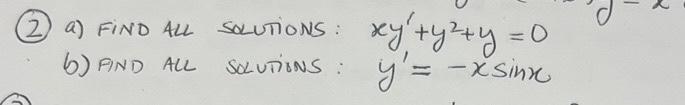 ② a) FIND ALL SOLUTIONS: xy'+y²+y=0
b) FIND ALL SOLUTIONS: y'=-x sinx